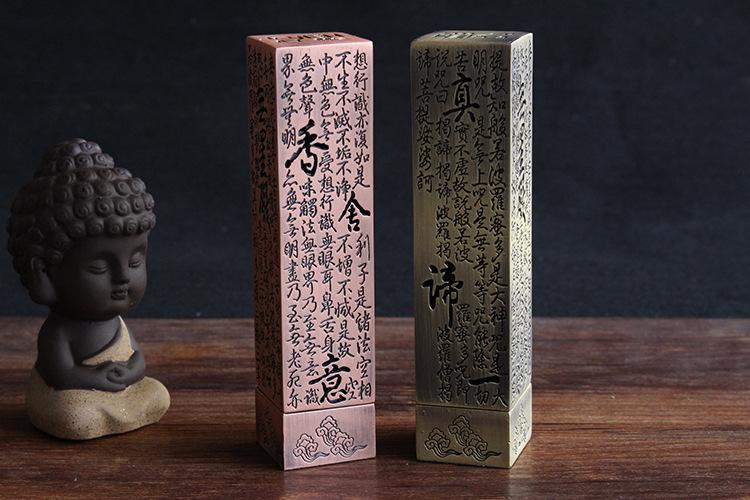 想行識亦復如是舍利子是諸法空相
不生不滅不垢不淨不增不減是故空
中無色無受想行識無眼耳鼻舌身意
無色聲香味觸法無眼界乃至無意識
界無無明亦無無明盡乃至無老死亦
提故知般若波羅蜜多是大神咒是大
明咒是無上咒是無等等咒能除一切
苦真實不虛故說般若波羅蜜多咒即
說咒曰揭諦揭諦波羅揭諦波羅僧揭
諦菩提娑婆訶